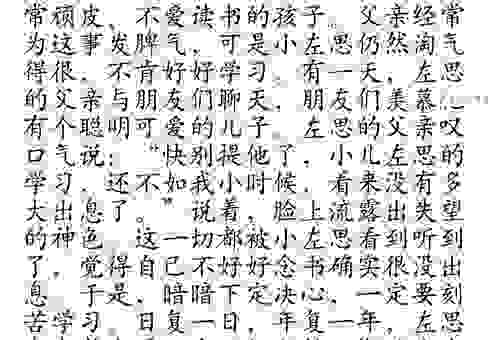 常顽皮、不爱读书的孩子。父亲经常
为这事发脾气，可是小左思仍然淘气
得很，不肯好好学习。有一天，左思
的父亲与朋友们聊天，朋友们羡慕他
有个聪明可爱的儿子。左思的父亲叹
口气说：“快别提他了，小儿左思的
学习，还不如我小时候，看来没有多
大出息了。”说着，脸上流露出失望
的神色。这一切都被小左思看到听到
了，觉得自己不好好念书确实很没出
息。于是，暗暗下定决心，一定要刻
苦学习。日复一日，年复一年，左思